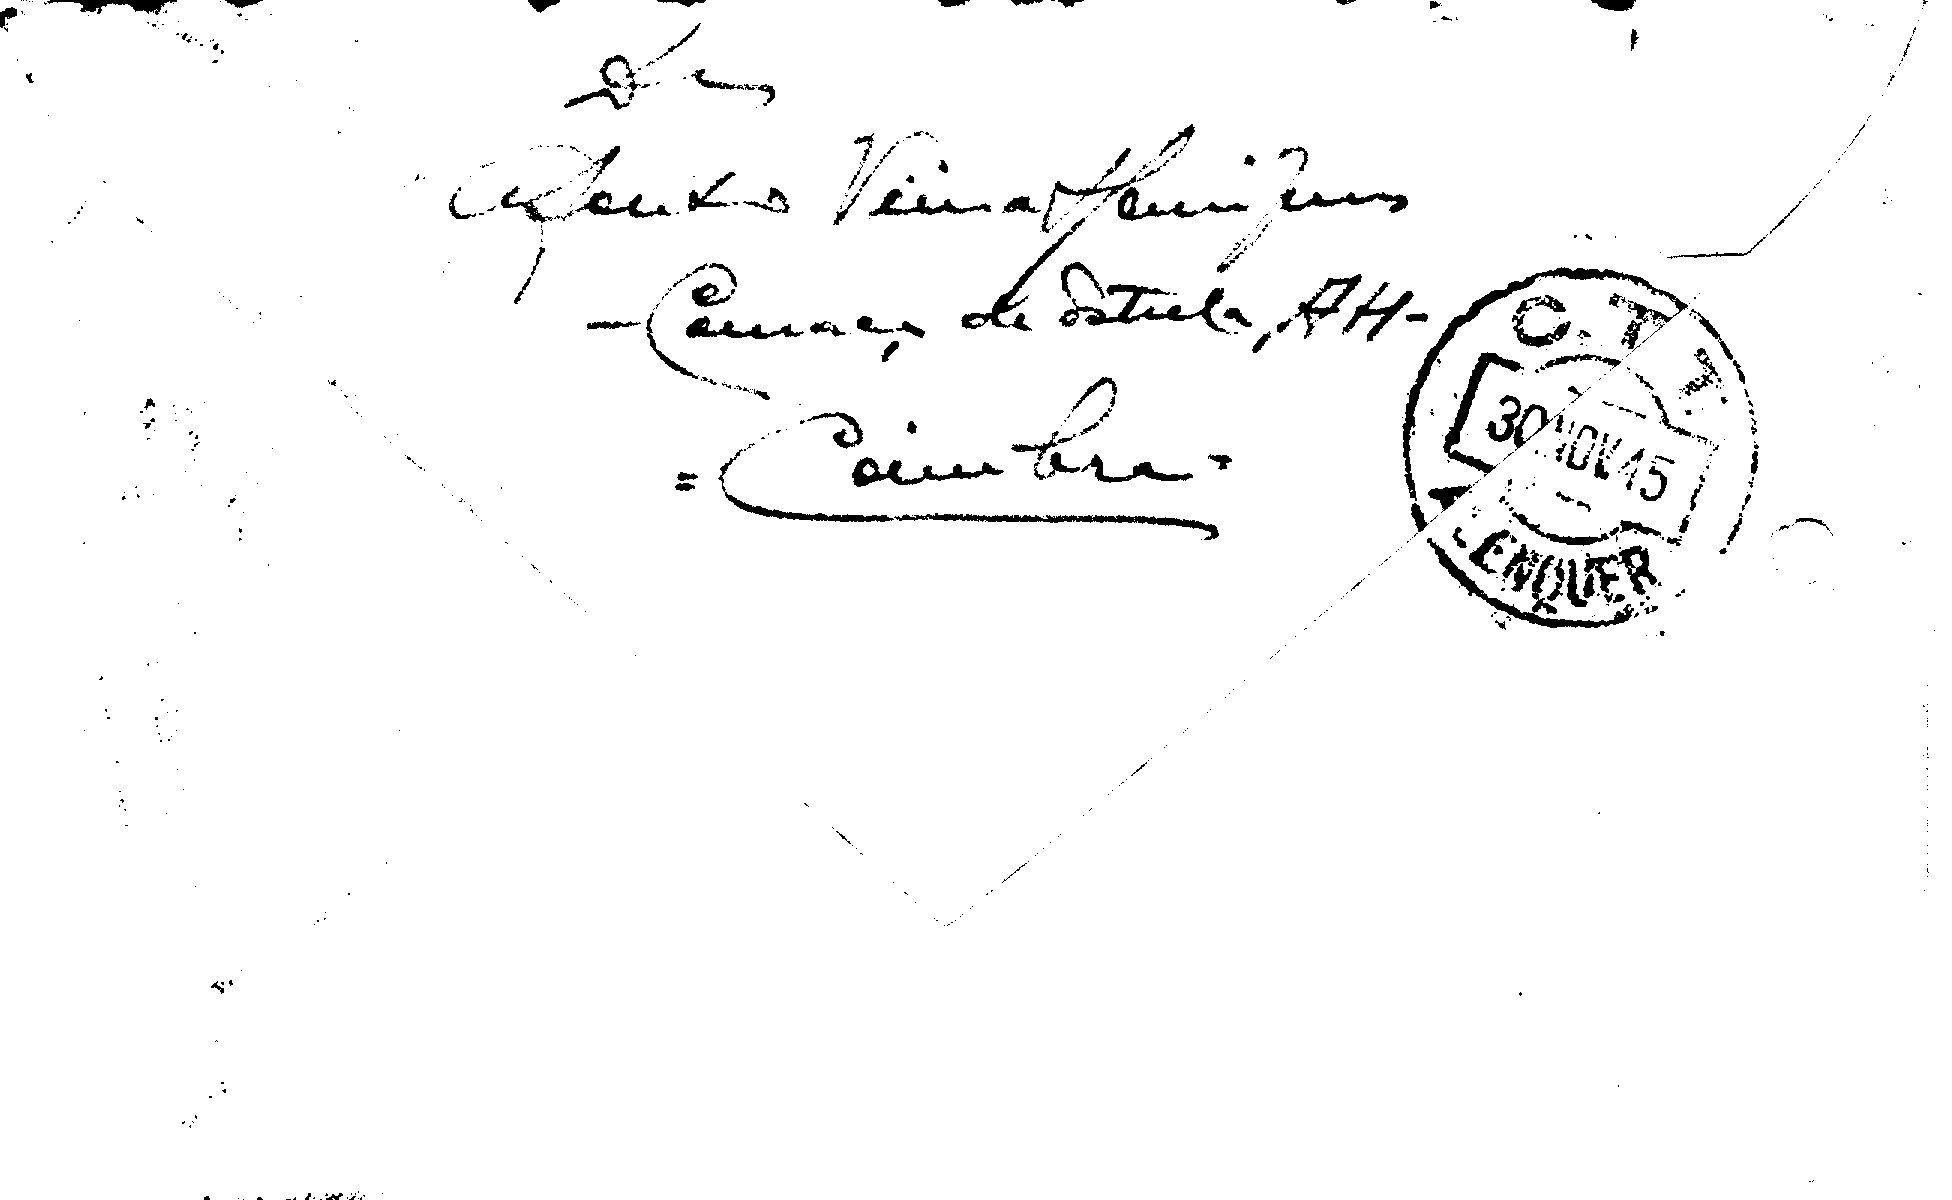 De
Afonso Vieira Henriques
- Couraça de Estrela, AH -
= Coimbra =
C. T. T.
30 NOV 45
ALENQUER